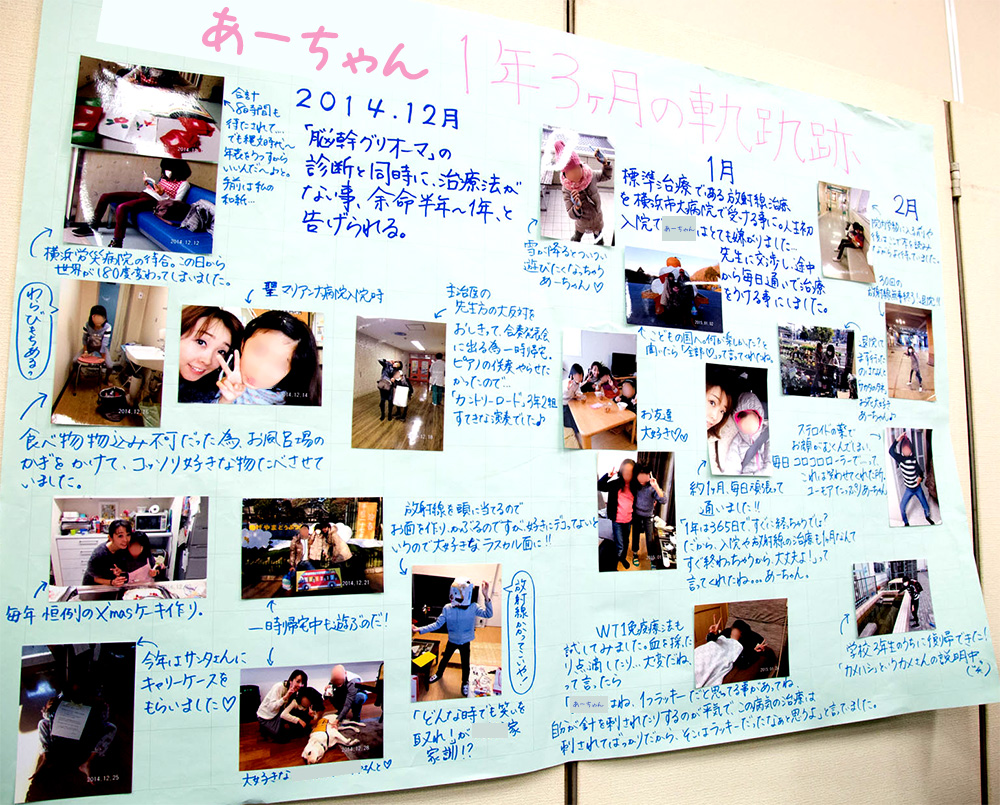 あーちゃん 1年3ヶ月の軌跡
合計
8時間も
待たされて…
でも縄文時代〜
年表をうつすから
いいんだヘ〜♪と。
手前は私の
和紙…
横浜労災病院の待合。この日から
世界が180度変わってしまいました。
2014.12月
「脳幹グリオーマ」の
診断と同時に、治療法が
ない事、余命半年〜1年、と
告げられる。
雪が降るとついつい
遊びたくなっちゃう
あーちゃん♡
1月
標準治療である放射線治療
を横浜市大病院で受ける事に。人生初
入院で あーちゃん はとても嫌がりました…
先生に交渉し、途中
から毎日通いで治療
をうける事にしました。
2月
30回の
わらびもちある?
聖マリアンナ病院入院時
主治医の
先生方の大反対を
おしきって、合奏発表会
に出る為一時帰宅。
ピアノの伴奏やらせた
かったので…
「カントリーロード」3年2組
すてきな演奏でした♪
こどもの国へ。何が楽しかった?と
聞いたら「全部♡」って言ってくれたね。
お友達
大好き♡♡
食べ物持込み不可だった為、お風呂場の
かぎをかけて、コッソリ好きな物たべさせて
いました。
約1ヶ月、毎日頑張って
通いました!!
「1年は365日ですぐに終っちゃうでしょ?
だから、入院や放射線の治療も1ヶ月なんて
すぐ終わっちゃうから、大丈夫よ!」って
言ってくれたね。。。あーちゃん。
ステロイドの薬で
お顔がむくんでしまい、
毎日コロコロローラーで…って、
これは笑わせてくれた所。
ユーモアたっぷりあーちゃん
放射線を頭に当てるので
お面を作り、かぶるのですが、好きにデコってない
いうので大好きなラスカル面に!!
放射線かかってこいや!
毎年恒例のXmasケーキ作り。
一時帰宅中も遊ぶのだ!
今年はサンタさんに
キャリーケースを
もらいました♡
大好きな
「どんな時でも笑いを
取れ!」が 家
家訓!?
WT1免疫療法も
試してみました。血を採った
り点滴したり…大変だね、
って言ったら
「あーちゃん はね、1つラッキーだと思ってる事があってね
自分が針を刺されたりするのが平気で、この病気の治療は
刺されてばっかりだから、そこはラッキーだったなぁと思うよ」と言ってました。
学校3年生のうちに復帰できた!